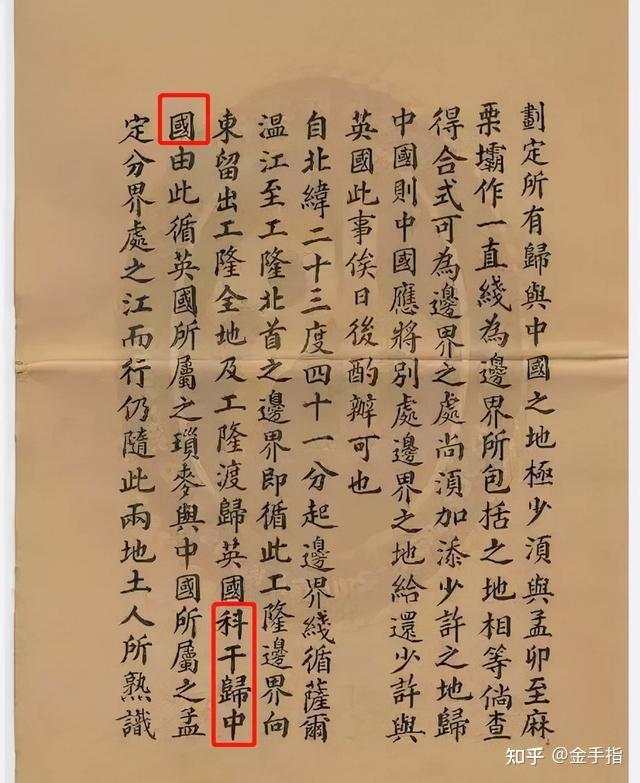 劃定所有歸與中國之地極少湏與孟卯至麻
栗壩作一直綫為邊界所包括之地相等倘查
得合式可為邊界之處尚湏加添少許之地歸
中國則中國應將別處邊界之地給還少許與
英國此事俟日後酌辦可也
自北緯二十三度四十一分起邊界綫循薩爾
温江至工隆北首之邊界即循此工隆邊界向
東留出工隆全地及工隆渡歸英國科干歸中
國由此循英國所屬之瑣麥與中國所屬之孟
定分界處之江而行仍隨此兩地土人所熟識
知乎 @金手指